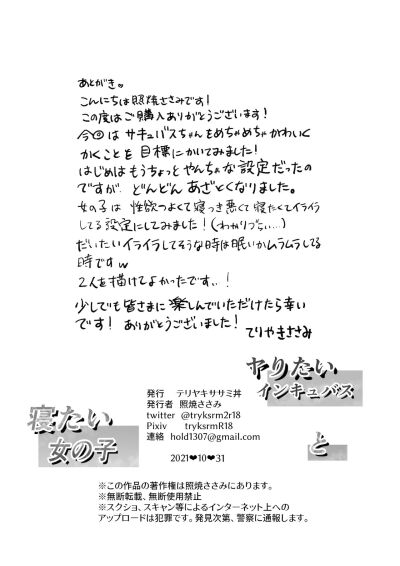 あとがき。
こんにちは照焼ささみです!
この度はご購入ありがとうございます!
今回はサキュバスちゃんをめちゃめちゃかわいく
かくことを目標にかいてみました!
はじめはもうちょっとやんちゃな設定だったの
ですが どんどんあざとくなりました。
女の子は性欲つよくて寝つき悪くて寝たくてイライラ
してる設定にしてみました!(わかりづらい...)
だいたいイライラしてそうな時は眠いかムラムラしてる
時ですw
2人を描けてよかったです..!
少しでも皆さまに楽しんでいただけたら幸い
です! ありがとうございました!
てりやきささみ
ヤりたい
インキュバス
と
寝たい
女の子
発行 テリヤキササミ丼
発行者 照焼ささみ
twitter @tryksrm2r18
Pixiv tryksrmR18
連絡 hold1307@gmail.com
2021❤10❤31
※この作品の著作権は照焼ささみにあります。
※無断転載、無断使用禁止
※スクショ、スキャン等によるインターネット上への
アップロードは犯罪です。発見次第、警察に通報します。